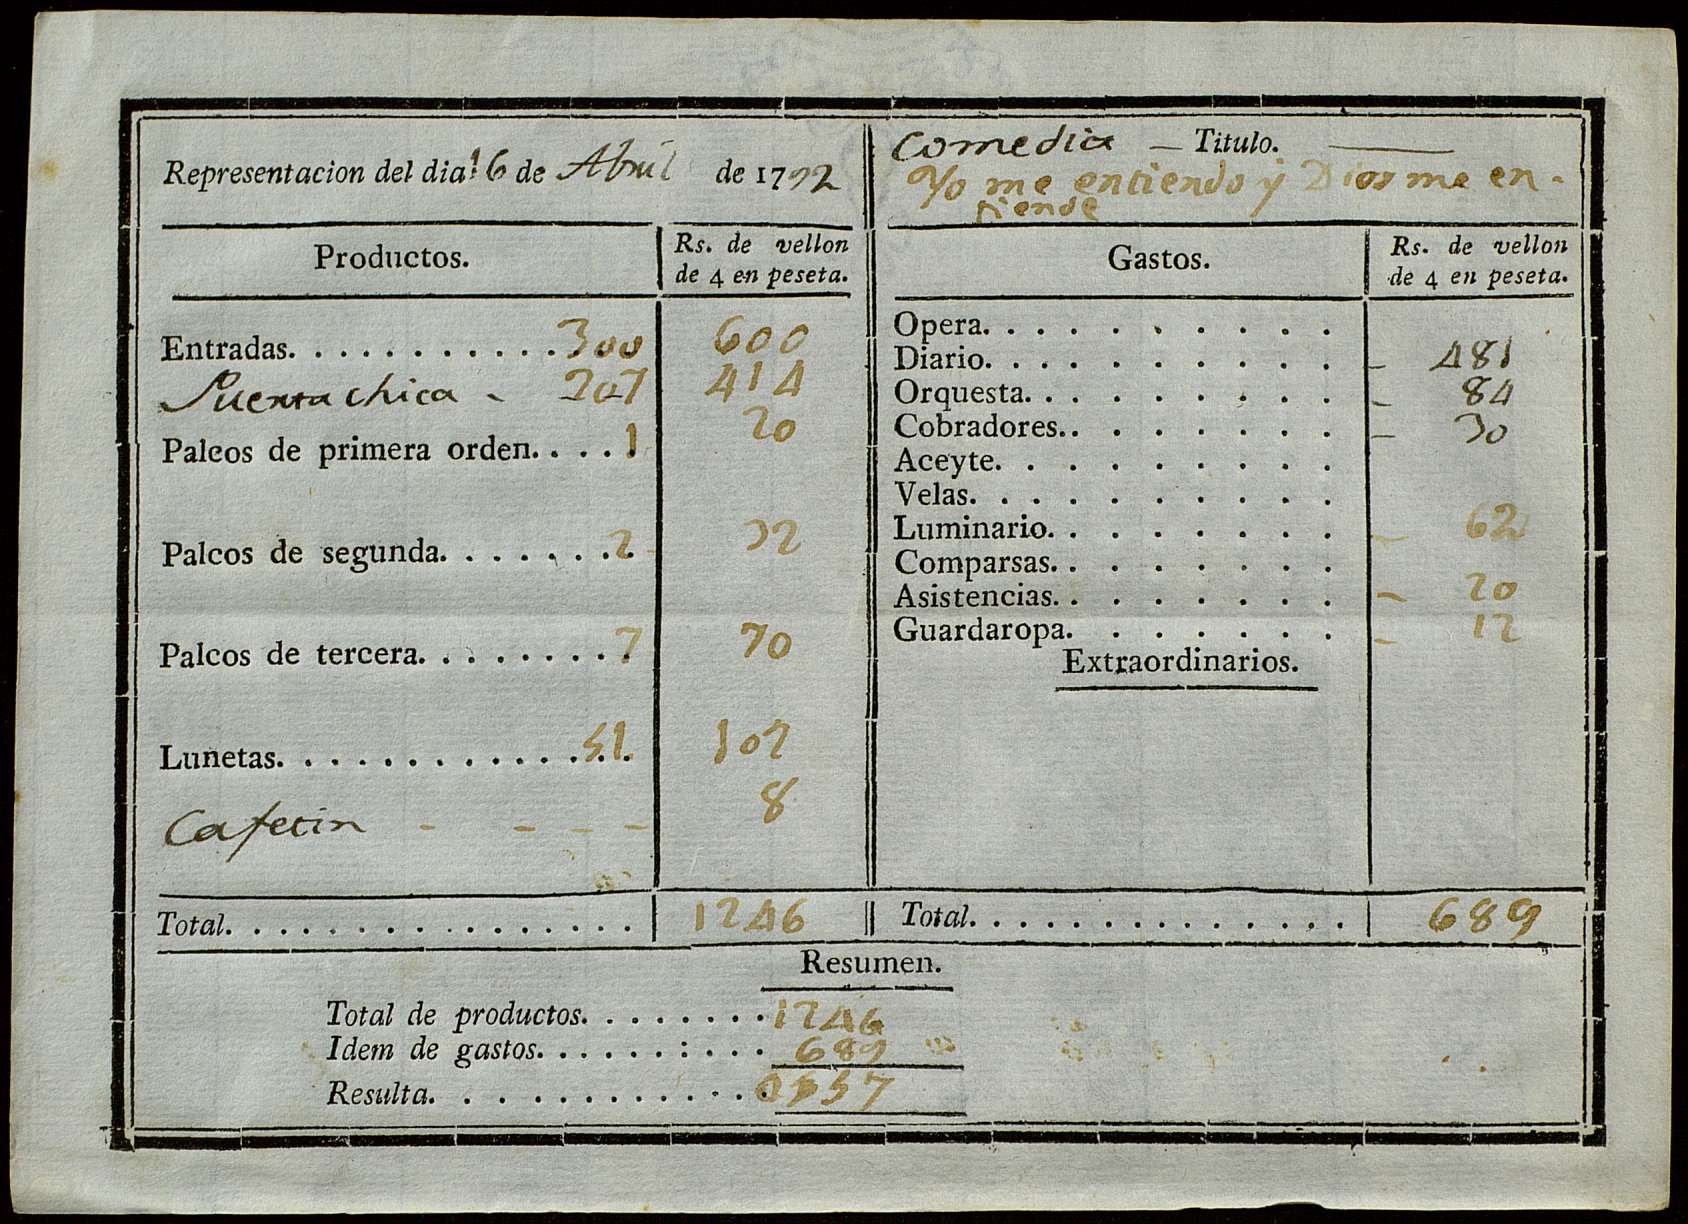 Representacion del dia 16 de Abril de 1792
Comedia — Titulo. —
Yo me entiendo y Dios me en-
tiende
Productos. Rs. de vellon
de 4 en peseta.
Entradas. . . . . . . . . . . 300 600
Puerta chica - 207 414
Palcos de primera orden. . . . 1 20
Palcos de segunda. . . . . . . 2 32
Palcos de tercera. . . . . . . . 7 70
Lunetas. . . . . . . . . . . . . 51 102
Cafetin - - - - 8
Total. . . . . . . . . . . . . . . . 1246
Gastos. Rs. de vellon
de 4 en peseta.
Opera. . . . . . . . . . .
Diario. . . . . . . . . . . - 481
Orquesta. . . . . . . . . - 84
Cobradores. . . . . . . . - 30
Aceyte. . . . . . . . . .
Velas. . . . . . . . . . .
Luminario. . . . . . . . - 62
Comparsas. . . . . . . .
Asistencias. . . . . . . . - 20
Guardaropa. . . . . . . - 12
Extraordinarios.
Total. . . . . . . . . . . . . . . 689
Resumen.
Total de productos. . . . . . . . 1246
Idem de gastos. . . . . . : . . . 689
Resulta. . . . . . . . . . . . 0557